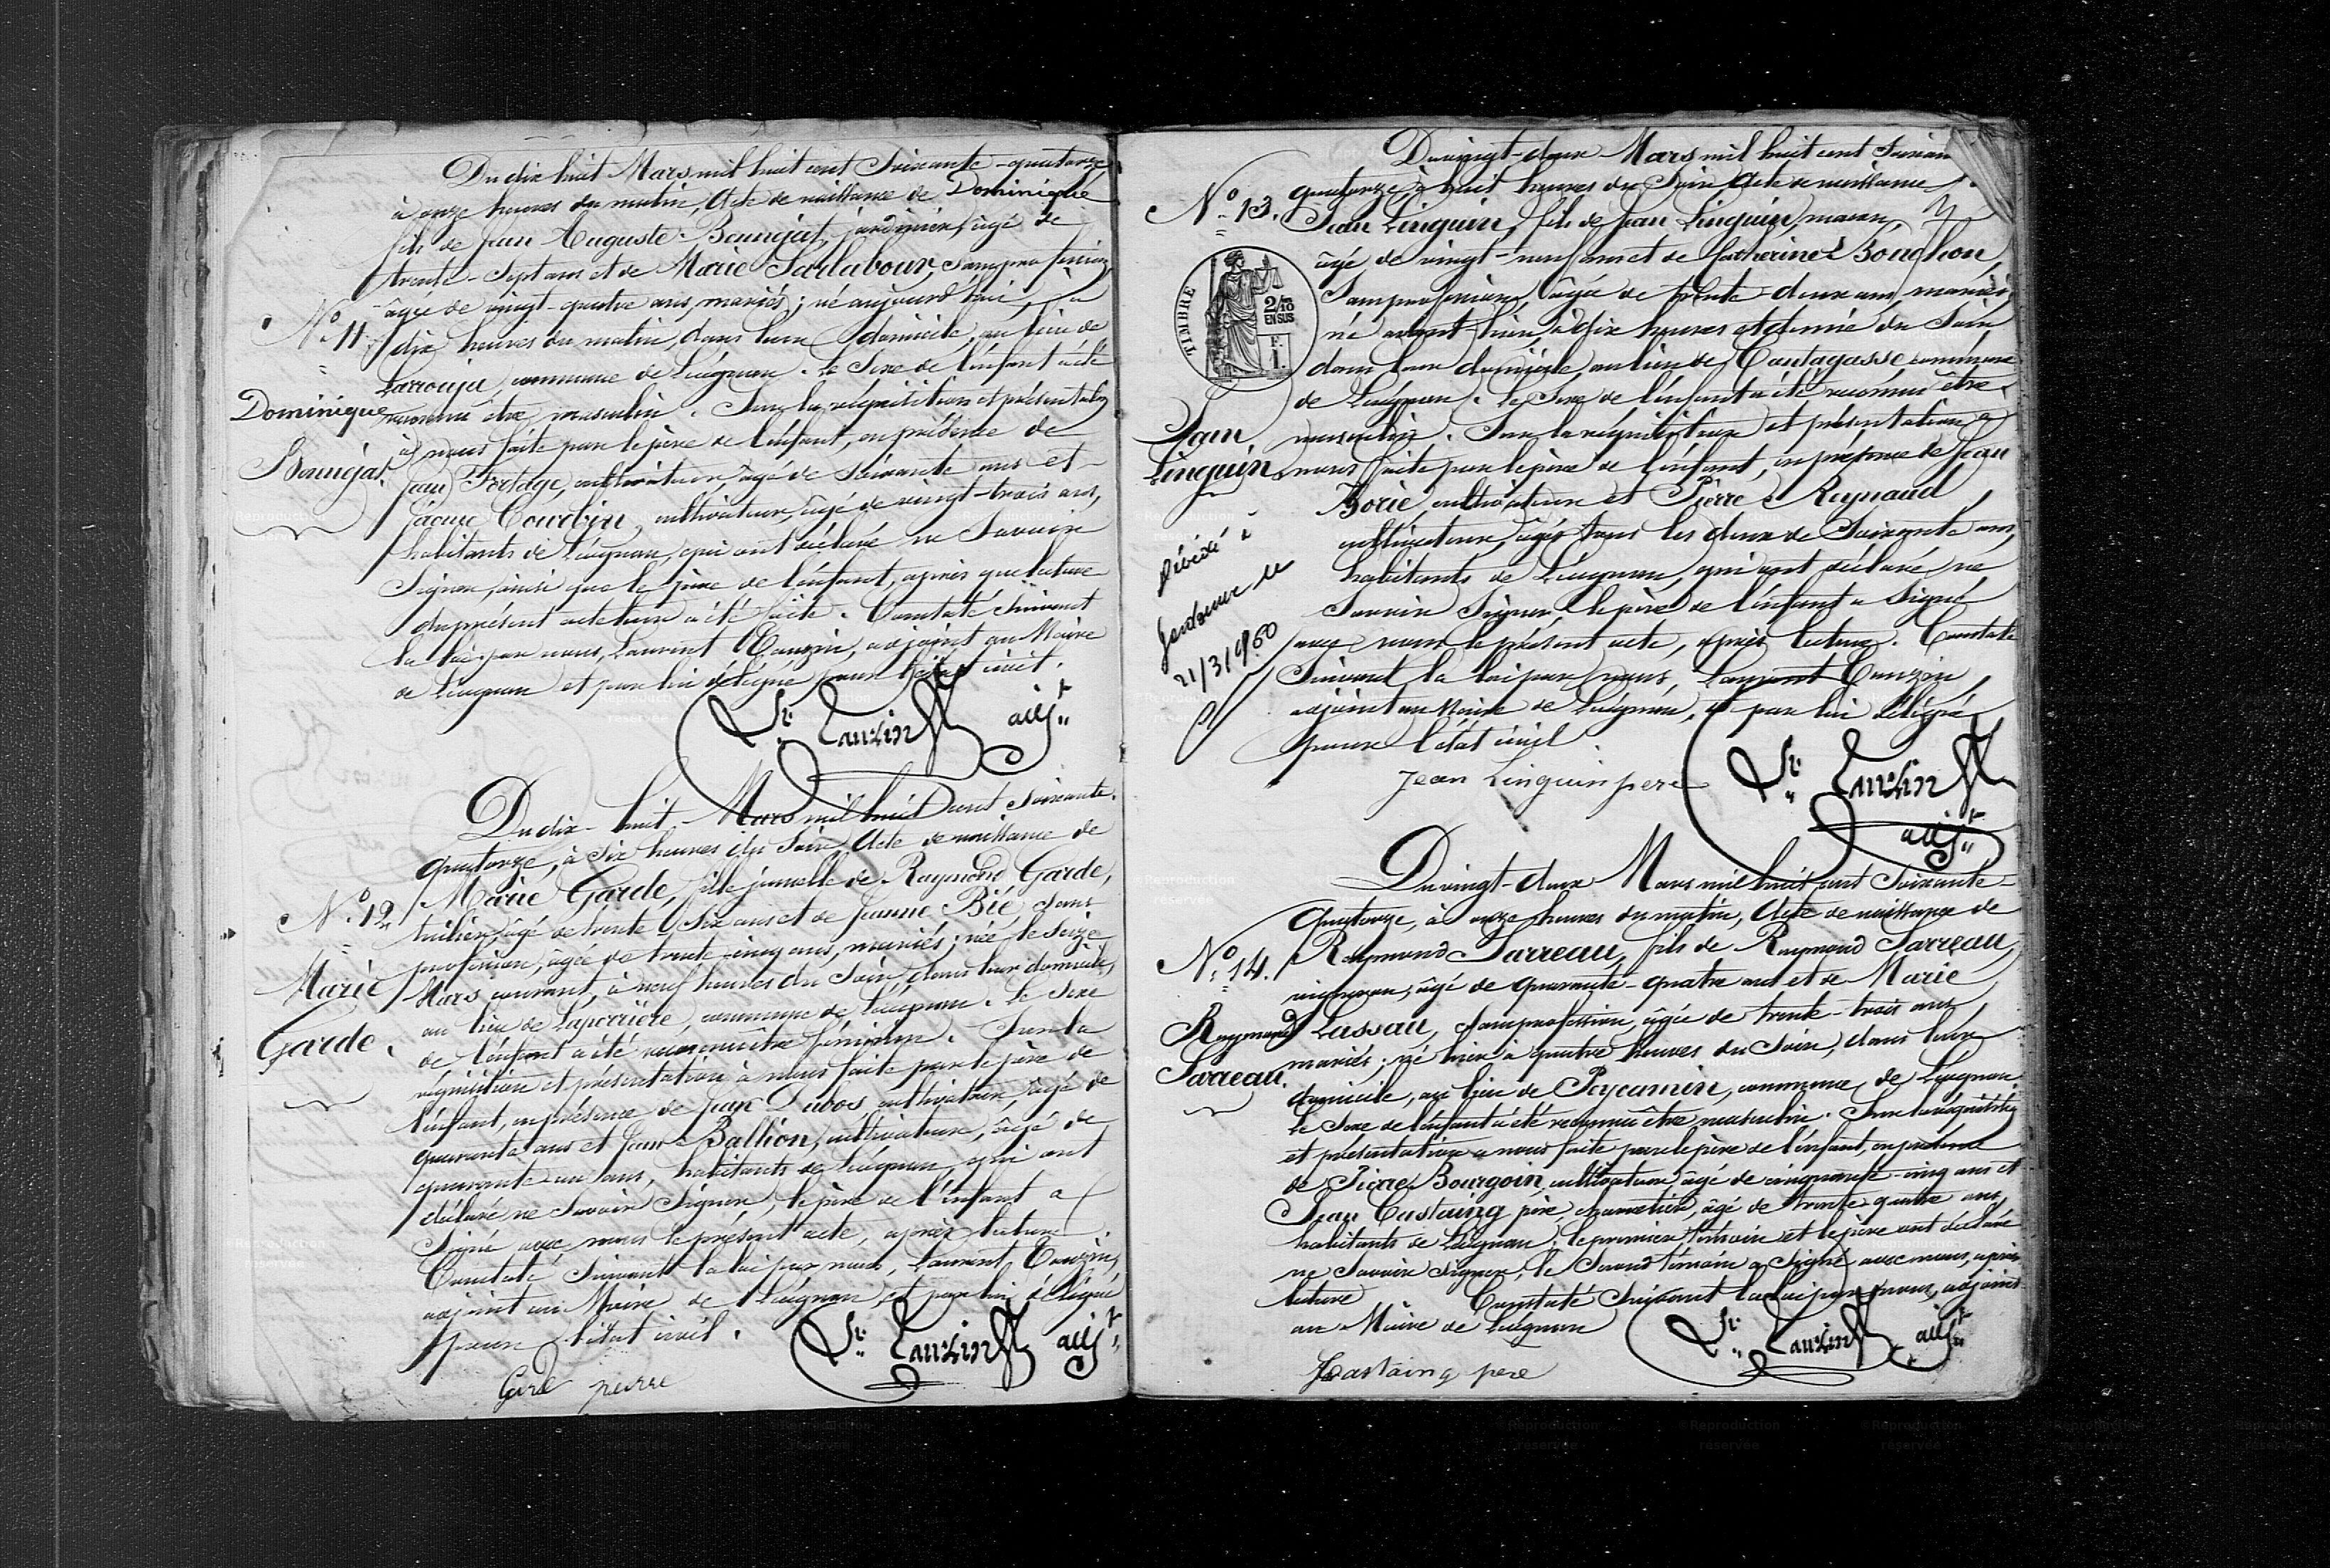 Du dix huit Mars mil huit cent Soixante-quatorze
à onze heures du matin, Acte de naissance de Dominique
fils de Jean Auguste Bounéjat, jardinier, âgé de
trente-Sept ans et de Marie Sarlabour, sans profession,
âgée de vingt-quatre ans, mariés; né aujourd'hui, à
N° 11.
dix heures du matin, dans leur domicile, au lieu de
Larrouja, commune de Léognan. Le Sexe de l'enfant a été
Dominique
reconnu être masculin. Sur la réquisition et présentation
à nous faite par le père de l'enfant, en présence de
Bounéjat.
Jean Fortage, cultivateur, âgé de Soixante ans et
Jacques Courbin, cultivateur, âgé de vingt-trois ans,
habitants de Léognan, qui ont déclaré ne Savoir
Signer, ainsi que le père de l'enfant, après que lecture
du présent acte leur a été faite. Constaté Suivant
la loi par nous, Laurent Cauzin, adjoint au Maire
de Léognan et par lui délégué pour l'état civil.
adjt
Du dix-huit Mars mil huit cent Soixante-
quatorze, à Six heures du Soir, Acte de naissance de
N° 12
Marie Garde, fille jumelle de Raymond Garde,
tuilier, âgé de trente Six ans et de Jeanne Bié, sans
profession, âgée de trente-cinq ans, mariés; née le Seize
Marie
Mars courant, à neuf heures du Soir, dans leur domicile,
au lieu de Laperrière, commune de Léognan. Le Sexe
Garde.
de l'enfant a été reconnu être féminin. Sur la
réquisition et présentation à nous faite par le père de
l'enfant, en présence de Jean Dubos, cultivateur, âgé de
quarante ans et Jean Ballion, cultivateur, âgé de
quarante un ans, habitants de Léognan, qui ont
déclaré ne Savoir Signer, le père de l'enfant a
Signé avec nous le présent acte, après lecture.
Constaté Suivant la loi par nous, Laurent Cauzin,
adjoint au Maire de Léognan et par lui délégué
pour l'état civil.
adjt
Gard pierre
Du vingt-deux Mars mil huit cent Soixan
N° 13.
quatorze, à huit heures du Soir, Acte de naissance
Jean Linguin, fils de Jean Linguin, maçon,
âgé de vingt-neuf ans et de Catherine Bouchon,
Sans profession, âgée de trente-deux ans, mariés;
TIMBRE
2/10
EN SUS
F.
1.
né avant-hier, à dix heures et demie du Soir
dans leur domicile, au lieu de Cantagasse commune
de Léognan. Le Sexe de l'enfant a été reconnu être
Jean
masculin. Sur la réquisition et présentation à
Linguin
nous faite par le père de l'enfant, en présence de Jean
Borie, cultivateur et Pierre Reynaud,
cultivateur, âgés tous les deux de Soixante ans,
habitants de Léognan, qui ont déclaré ne
Savoir Signer, le père de l'enfant a Signé
avec nous le présent acte, après lecture. Constaté
Suivant la loi par nous, Laurent Cauzin,
adjoint au Maire de Léognan, et par lui délégué
pour l'état civil.
Décédé à
le
21/3/1960
Jean Linguin pere
adjt
Du vingt-deux Mars mil huit cent Soixante-
quatorze, à onze heures du matin, Acte de naissance de
N° 14.
Raymond Sarreau, fils de Raymond Sarreau,
vigneron, âgé de quarante-quatre ans et de Marie
Raymond
Lassau, Sans profession, âgée de trente-trois ans,
mariés; né hier à quatre heures du Soir, dans leur
Sarreau.
domicile, au lieu de Peycamin, commune de Léognan.
Le Sexe de l'enfant a été reconnu être masculin. Sur la réquisition
et présentation à nous faite par le père de l'enfant, en présence
de Pierre Bourgoin, cultivateur, âgé de cinquante-cinq ans et
Jean Castaing père, charretier, âgé de trente-quatre ans,
habitants de Léognan; le premier témoin et le père ont déclaré
ne Savoir Signer, le Second témoin a Signé avec nous, après
lecture Constaté Suivant la loi par nous, adjoint
au Maire de Léognan
adjt
Castaing pere